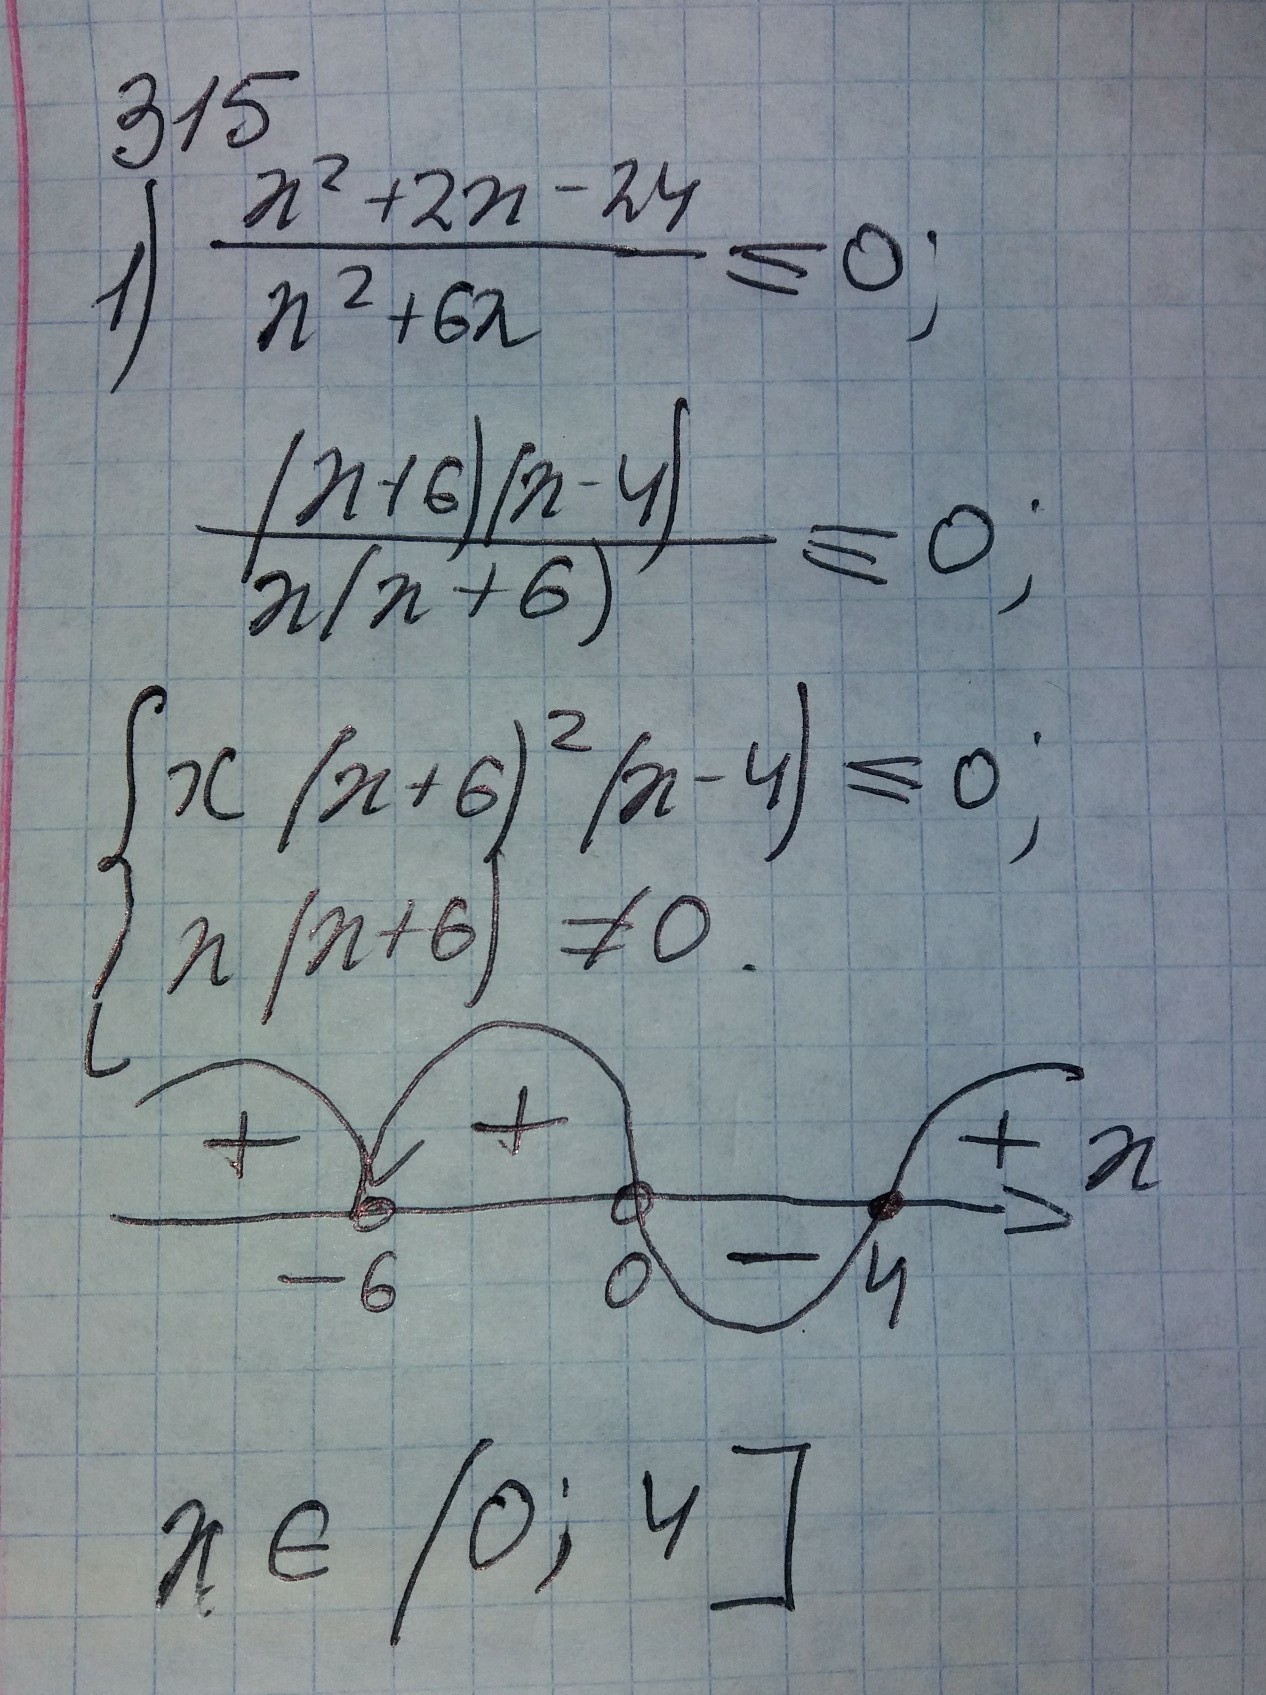 315
1) x² + 2x - 24 / x² + 6x ≤ 0;
(x+6)(x-4) / x(x+6) ≤ 0;
{ x (x+6)² (x-4) ≤ 0;
x (x+6) ≠ 0.
+ + - + x
-6 0 4
x ∈ (0; 4]